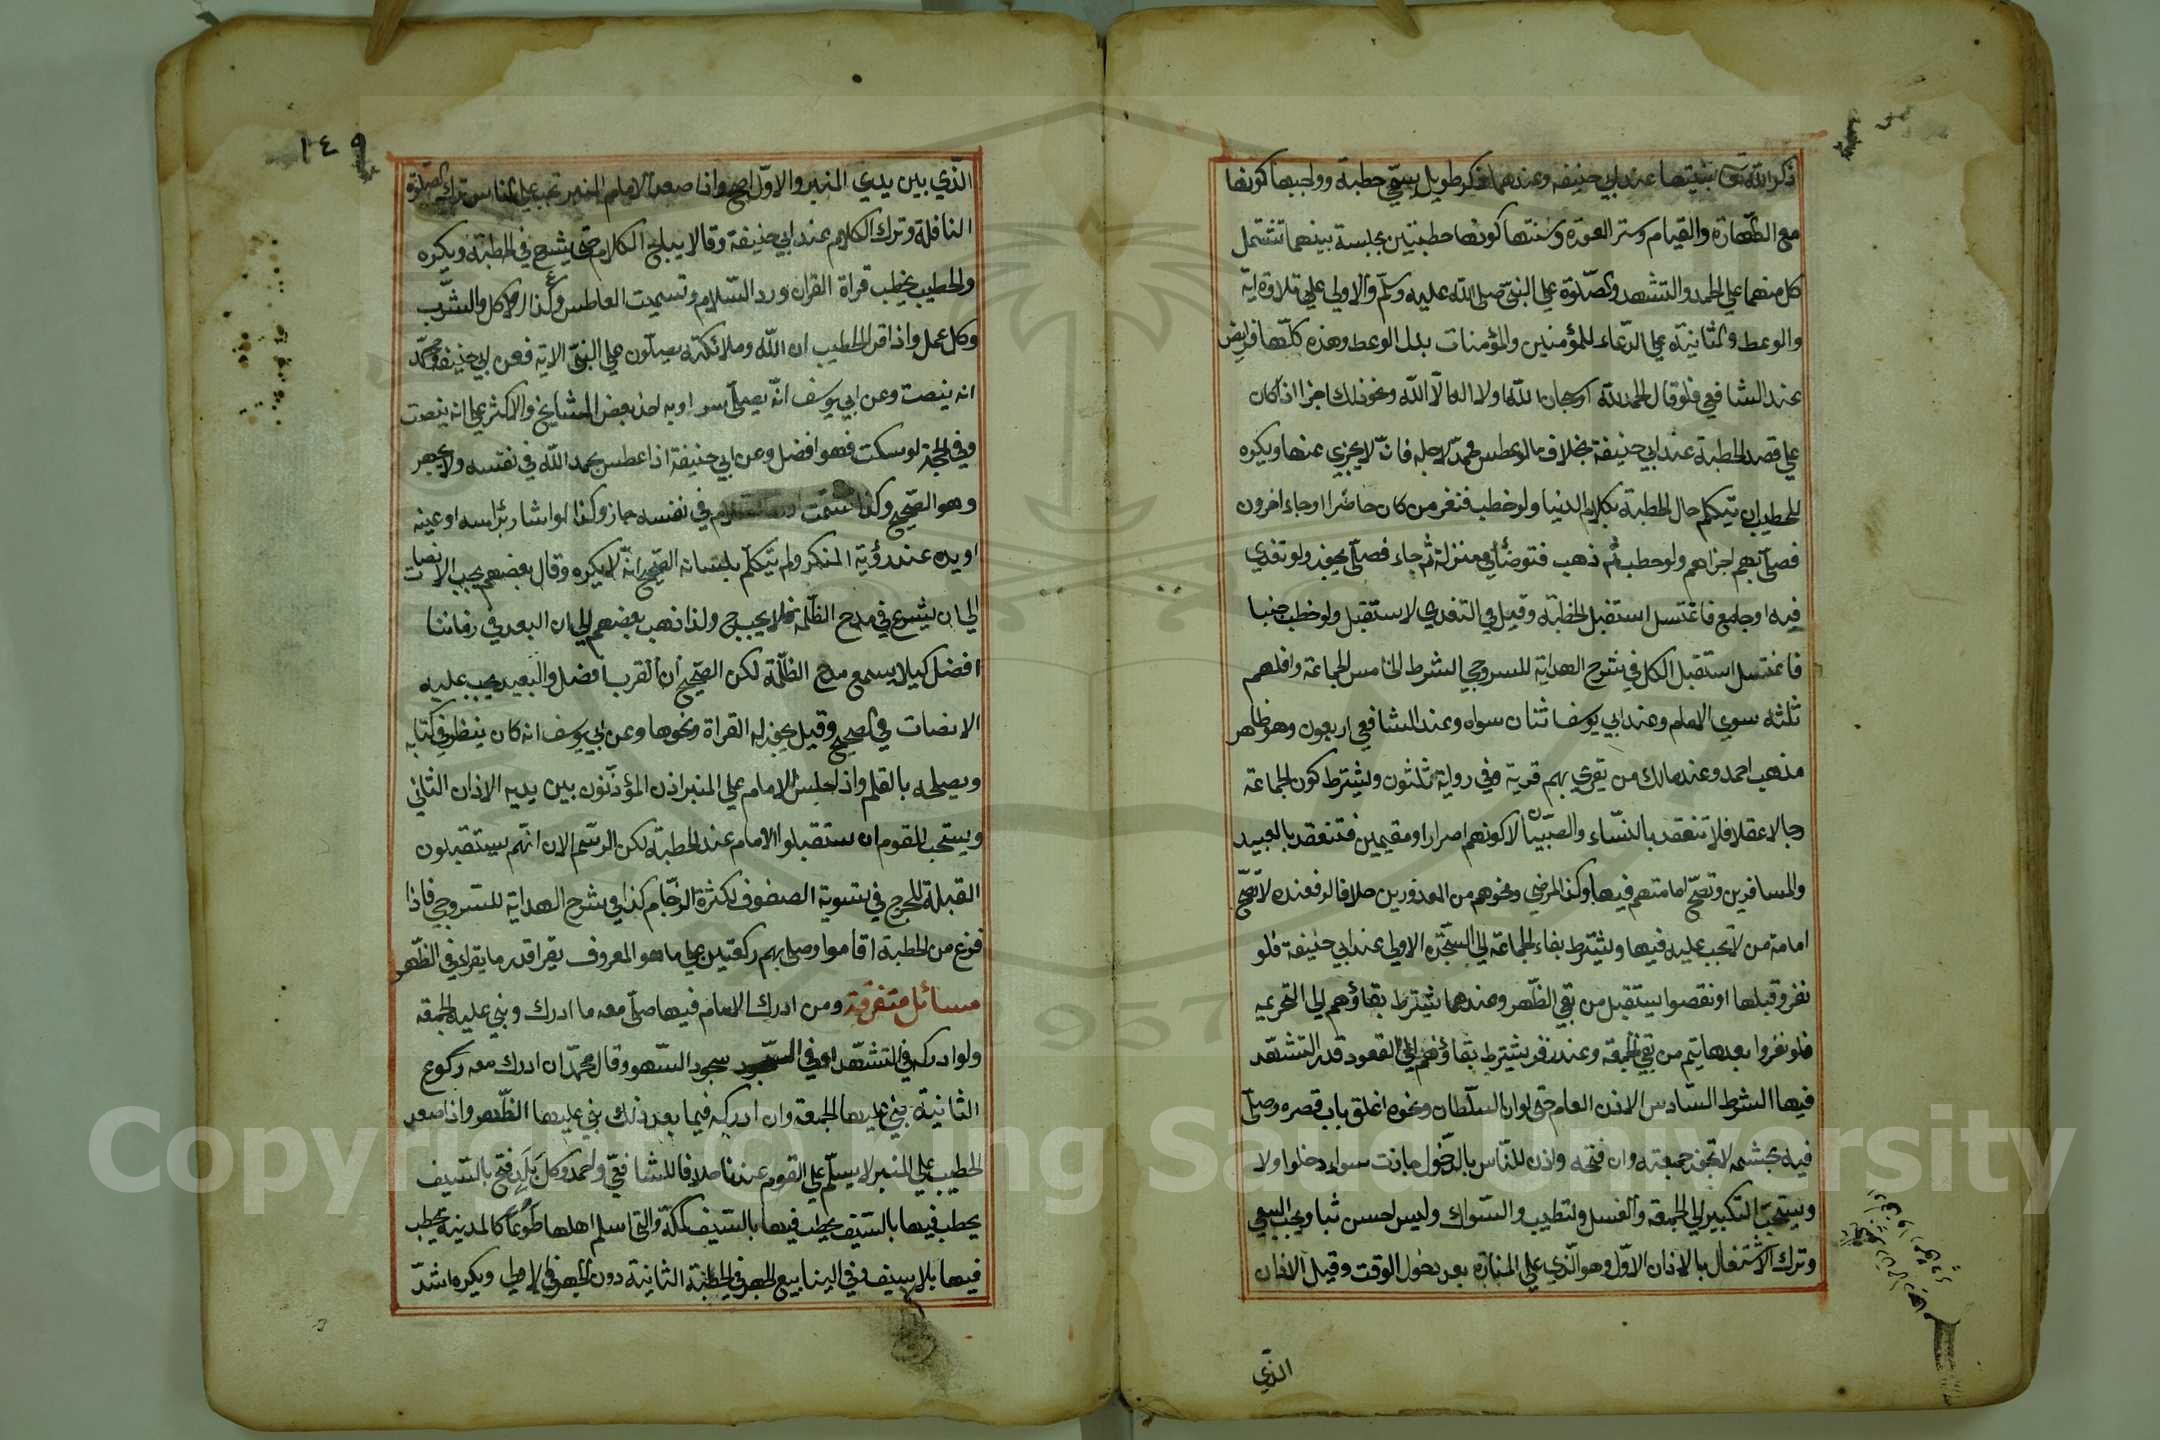 ذكر الله تعالى بنيتها عند ابي حنيفه وعندهما ذكر طويل يسمّي خطبة وواجبها كونها
مع الطّهارة والقيام وستر العورة وسنتها كونها خطبتين بجلسة بينهما تشتمل
كل منهما علي الحمد والتشهد والصّلوة علي النبيّ صلى الله عليه وسلّم والاولي علي تلاوة اية
والوعظ والثانية علي الدّعاء للمؤمنين والمؤمنات بدل الوعظ وهذه كلّها فرايض
عند الشافعي فلو قال الحمد لله او سبحان الله او لا اله الّا الله ونحو ذلك اجزا اذا كان
علي قصد الخطبة عند ابي حنيفة بخلاف ما لو عطس فحمد لاجله فانّه لا يجزي عنها ويكره
للخطيب ان يتكلم حال الخطبة بكلام الدنيا ولو خطب فنفر من كان حاضرا وجاء اخرون
فصلّي بهم اجزاهم ولو خطب ثم ذهب فتوضأ في منزله ثم جاء فصلّي يجوز ولو تغدي
فيه او جامع فاغتسل استقبل الخطبة وقيل في التغدي لا يستقبل ولو خطب جنبا
فاغتسل استقبل الكل في شرح الهداية للسروجي الشرط الخامس الجماعة واقلهم
ثلثة سوي الامام وعند ابي يوسف اثنان سواه وعند الشافعي اربعون وهو ظاهر
مذهب احمد وعند مالك من تقري بهم قرية وفي رواية ثلثون ويشترط كون الجماعة
رجالا عقلا فلا تنعقد بالنسّاء والصّبيان لا كونهم احرارا ومقيمين فتنعقد بالعبيد
والمسافرين وتصحّ امامتهم فيها وكذا المرضي ونحوهم من المعذورين خلافا لزفر فعنده لا تصحّ
امامة من لا تجب عليه فيها ويشترط بقاء الجماعة الي السّجدة الاولي عند ابي حنيفة فلو
نفروا قبلها او نقصوا يستقبل من بقي الظّهر وعندهما يشترط بقاؤهم الي التحريمة
فلو نفروا بعدها يتم من بقي الجمعة وعند زفر يشترط بقاؤهم الي القعود قدر التشهّد
فيها الشرط السّادس الاذن العام حتي لو ان السلطان ونحوه اغلق باب قصره وصلّي
فيه بحشمه لا تجوز جمعته وان فتحه واذن للنّاس بالدّخول جازت سواء دخلوا او لا
ويستحبّ التكبير الي الجمعة والغسل والتطيب والسّواك وليس احسن ثيابا ويجب السعي
وترك الاشتغال بالاذان الاوّل وهو الّذي علي المنارة بعد دخول الوقت وقيل الاذان
الذي
١٤٩
الّذي بين يدي المنبر والاوّل اصح واذا صعد الامام المنبر تجب علي الناس ترك الصلوة
النافلة وترك الكلام عند ابي حنيفة وقالا يباح الكلام حتي يشرع في الخطبة ويكره
والخطيب يخطب قراة القران ورد السّلام وتسميت العاطس وكذا الاكل والشّرب
وكل عمل واذا قرا الخطيب ان الله وملائكته يصلّون علي النبيّ الاية فعن ابي حنيفة ومحمّد
انه ينصت وعن ابي يوسف انّه يصلي سرا وبه اخذ بعض المشايخ والاكثر علي انه ينصت
وفي الحجة لو سكت فهو افضل وعن ابي حنيفة اذا عطس يحمد الله في نفسه ولا يجهر
وهو الصّحيح وكذا في نفسه جاز وكذا لو اشار براسه او عينه
او يده عند رؤية المنكر ولم يتكلّم بلسانه الصحيح انّه لا يكره وقال بعضهم يجب الانصات
الي ان يشرع في مدح الظّلمة فلا يجب ح ولذا ذهب بعضهم الي ان البعد في زماننا
افضل كيلا يسمع مدح الظّلمة لكن الصحيح ان القرب افضل والبعيد يجب عليه
الانصات في الصحيح وقيل يجوز له القراة ونحوها وعن ابي يوسف انه كان ينظر في كتابه
ويصلحه بالقلم واذا جلس الامام علي المنبر اذن المؤذّنون بين يديه الاذان الثّاني
ويستحب للقوم ان يستقبلوا الامام عند الخطبة لكن الرسّم الان انّهم يستقبلون
القبلة للحرج في تسوية الصفوف لكثرة الزّحام كذا في شرح الهداية للسروجي فاذا
فرغ من الخطبة اقاموا وصلي بهم ركعتين علي ما هو المعروف يقرا قدر ما يقرا في الظّهر
مسائل متفرقة ومن ادرك الامام فيها صلّي معه ما ادرك وبني عليه الجمعة
ولو ادركه في التشهّد او في سجود السّهو وقال محمّد ان ادرك معه ركوع
الثانية بني عليها الجمعة وان ادركه فيما بعد ذلك بني عليها الظّهر واذا صعد
الخطيب علي المنبر لا يسلّم علي القوم عندنا خلافا للشافعيّ واحمد وكلّ بلد فتح بالسّيف
يخطب فيها بالسّيف يخطب فيها بالسّيف كمكّة والتي اسلم اهلها طوعا كالمدينة يخطب
فيها بلا سيف وفي الينابيع الجهر في الخطبة الثانية دون الجهر في الاولي ويكره اشدّ
Copyright © King Saud University
1957